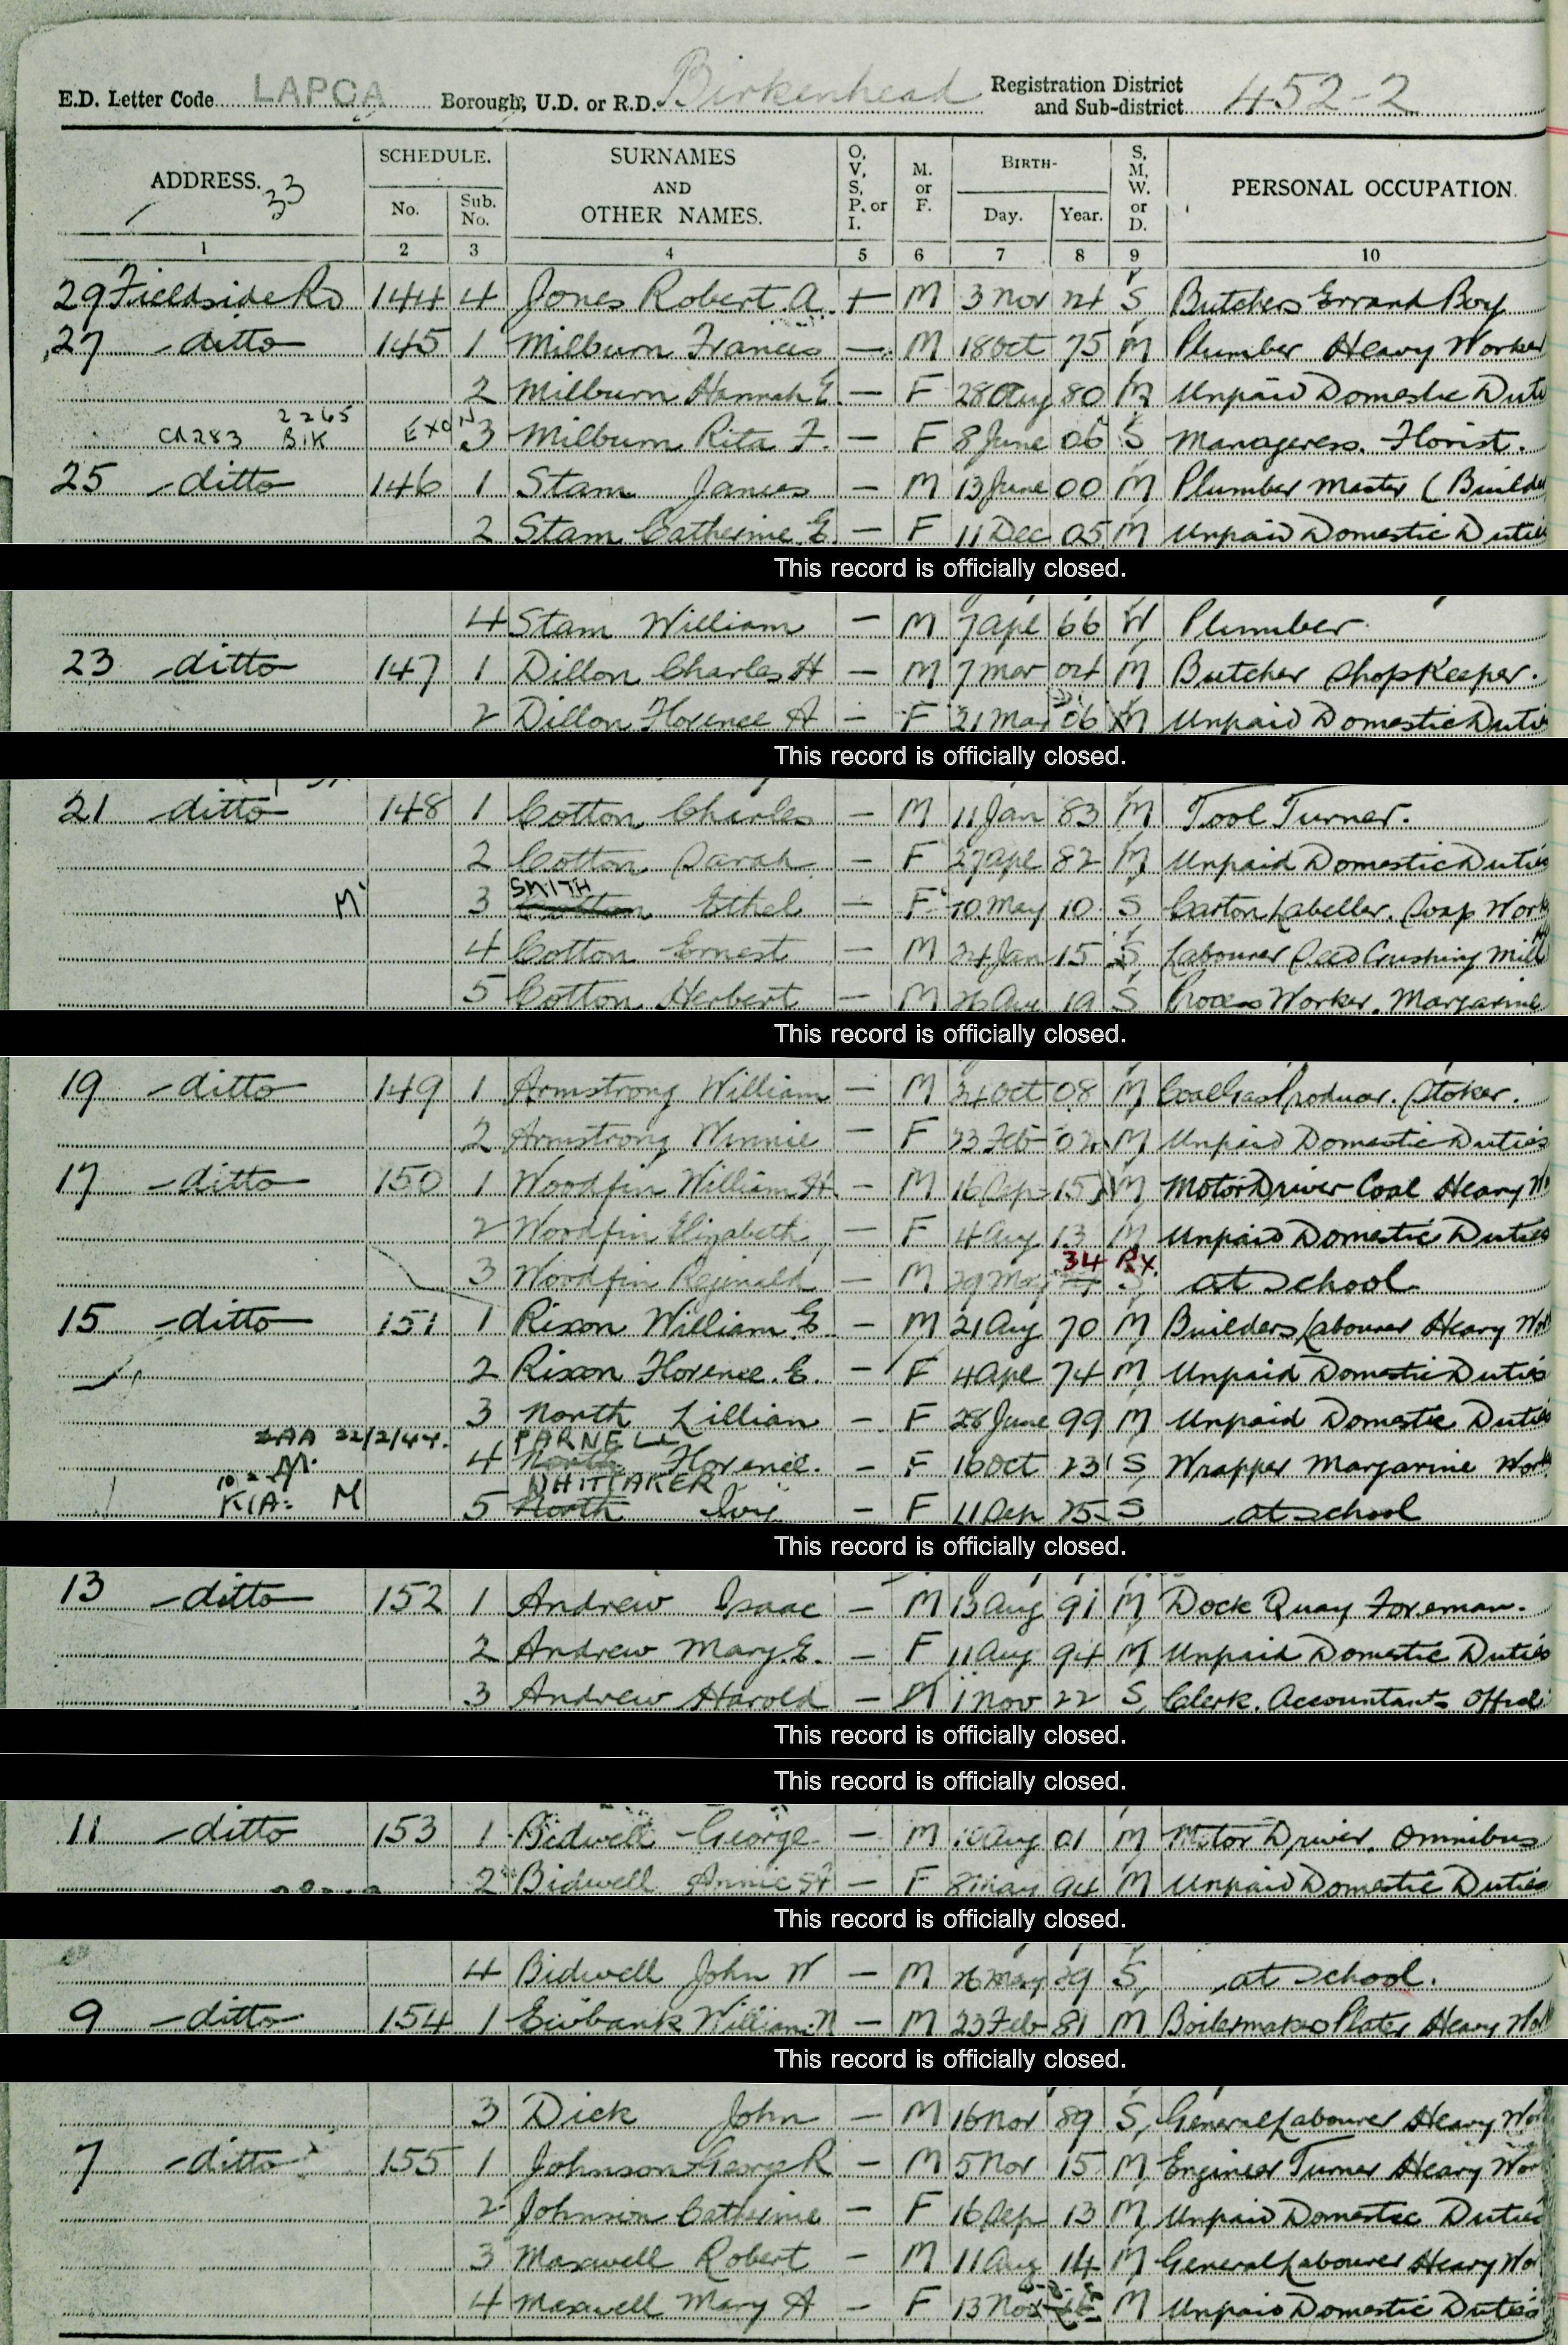 E.D. Letter Code LAPCA Borough, U.D. or R.D. Birkenhead Registration District and Sub-district 452-2
ADDRESS. 33 SCHEDULE. No. Sub. No. SURNAMES AND OTHER NAMES. O, V, S, P. or I. M. or F. BIRTH- Day. Year. S, M, W. or D. PERSONAL OCCUPATION
1 2 3 4 5 6 7 8 9 10
29 Fieldside Rd 144 4 Jones Robert A. M 3 Nov 24 S Butchers Errand Boy
27 ditto 145 1 Milburn Francis — M 18 Oct 75 M Plumber Heavy Worker
2 Milburn Hannah E. — F 28 Aug 80 M Unpaid Domestic Duti
CA283 2265 BIK 3 Milburn Rita F. — F 8 June 06 S Manageress. Florist.
25 ditto 146 1 Stam James — M 13 June 00 M Plumber Master (Builde
2 Stam Catherine E. — F 11 Dec 05 M Unpaid Domestic Duties
This record is officially closed.
4 Stam William — M 7 Apl 66 W Plumber
23 ditto 147 1 Dillon Charles H — M 7 Mar 04 M Butcher Shopkeeper.
2 Dillon Florence A — F 21 Mar 06 M Unpaid Domestic Duties
This record is officially closed.
21 ditto 148 1 Cotton Charles — M 11 Jan 83 M Tool Turner.
2 Cotton Sarah — F 27 Apl 82 M Unpaid Domestic Duties
SMITH
M 3 Cotton Ethel — F 10 May 10 S Carton Labeller. Soap Work
4 Cotton Ernest — M 24 Jan 15 S Labourer Seed Crushing Mill
5 Cotton Herbert — M 26 Aug 19 S Process Worker. Margarine
This record is officially closed.
19 ditto 149 1 Armstrong William — M 24 Oct 08 M Coal Gas Producer. Stoker.
2 Armstrong Winnie — F 23 Feb 02 M Unpaid Domestic Duties
17 ditto 150 1 Woodfin William H — M 16 Sep 15 M Motor Driver Coal Heavy W
2 Woodfin Elizabeth — F 4 Aug 13 M Unpaid Domestic Duties
34 RX.
3 Woodfin Reginald — M 29 May S at School
15 ditto 151 1 Rixon William E — M 21 Aug 70 M Builders Labourer Heavy Wo
2 Rixon Florence. E. — F 4 Apl 74 M Unpaid Domestic Duties
3 North Lillian — F 28 June 99 M Unpaid Domestic Duties
22/2/44. PARNELL
M. 4 North Florence. — F 16 Oct 23 S Wrapper Margarine Work
WHITTAKER
M 5 North Ivie — F 11 Sep 25 S at School
This record is officially closed.
13 ditto 152 1 Andrew Isaac — M 13 Aug 91 M Dock Quay Foreman.
2 Andrew Mary. E. — F 11 Aug 94 M Unpaid Domestic Duties
3 Andrew Harold — M 1 Nov 22 S Clerk. Accountants Office
This record is officially closed.
This record is officially closed.
11 ditto 153 1 Bidwell George — M 10 Aug 01 M Motor Driver. Omnibus
2 Bidwell Annie H — F 8 May 94 M Unpaid Domestic Duties
This record is officially closed.
4 Bidwell John W — M 26 May 29 S at School.
9 ditto 154 1 Ewbank William. N — M 23 Feb 81 M Boilermaker Plater Heavy Wo
This record is officially closed.
3 Dick John — M 16 Nov 89 S General Labourer Heavy Wor
7 ditto 155 1 Johnson George R — M 5 Nov 15 M Engineer Turner Heavy Wor
2 Johnson Catherine — F 16 Sep 13 M Unpaid Domestic Duties
3 Maxwell Robert — M 11 Aug 14 M General Labourer Heavy Wor
4 Maxwell Mary A — F 13 Nov M Unpaid Domestic Duties